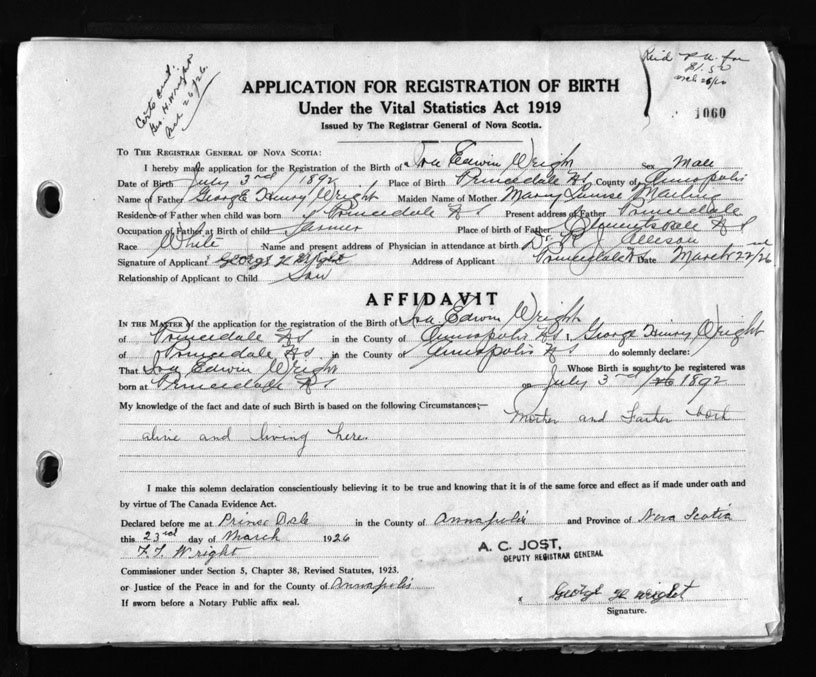 Certs sent
Geo H Wright
26/26.
$1.50
1060
APPLICATION FOR REGISTRATION OF BIRTH
Under the Vital Statistics Act 1919
Issued by The Registrar General of Nova Scotia.
TO THE REGISTRAR GENERAL OF NOVA SCOTIA:
I hereby make application for the Registration of the Birth of Ira Edwin Wright Sex Male
Date of Birth July 3rd / 1892 Place of Birth Princedale NS County of Annapolis
Name of Father George Henry Wright Maiden Name of Mother Mary Louise
Residence of Father when child was born Princedale NS Present address of Father Princedale
Occupation of Father at Birth of child Farmer Place of birth of Father Clementsvale NS
Race White Name and present address of Physician in attendance at birth Dr Allison
Signature of Applicant George H Wright Address of Applicant Princedale Date March 22nd/26
Relationship of Applicant to Child Son
AFFIDAVIT
IN THE MATTER of the application for the registration of the Birth of Ira Edwin Wright
of Princedale NS in the County of Annapolis NS I, George Henry Wright
of Princedale NS in the County of Annapolis NS do solemnly declare:
That Ira Edwin Wright Whose Birth is sought to be registered was
born at Princedale NS on July 3rd / 1892
My knowledge of the fact and date of such Birth is based on the following Circumstances;—
Mother and Father both
alive and living here
I make this solemn declaration conscientiously believing it to be true and knowing that it is of the same force and effect as if made under oath and
by virtue of The Canada Evidence Act.
Declared before me at Prince Dale in the County of Annapolis and Province of Nova Scotia
this 23rd day of March 1926
F. T. Wright
A. C. JOST,
DEPUTY REGISTRAR GENERAL
Commissioner under Section 5, Chapter 38, Revised Statutes, 1923.
or Justice of the Peace in and for the County of Annapolis
If sworn before a Notary Public affix seal.
x George H Wright
Signature.